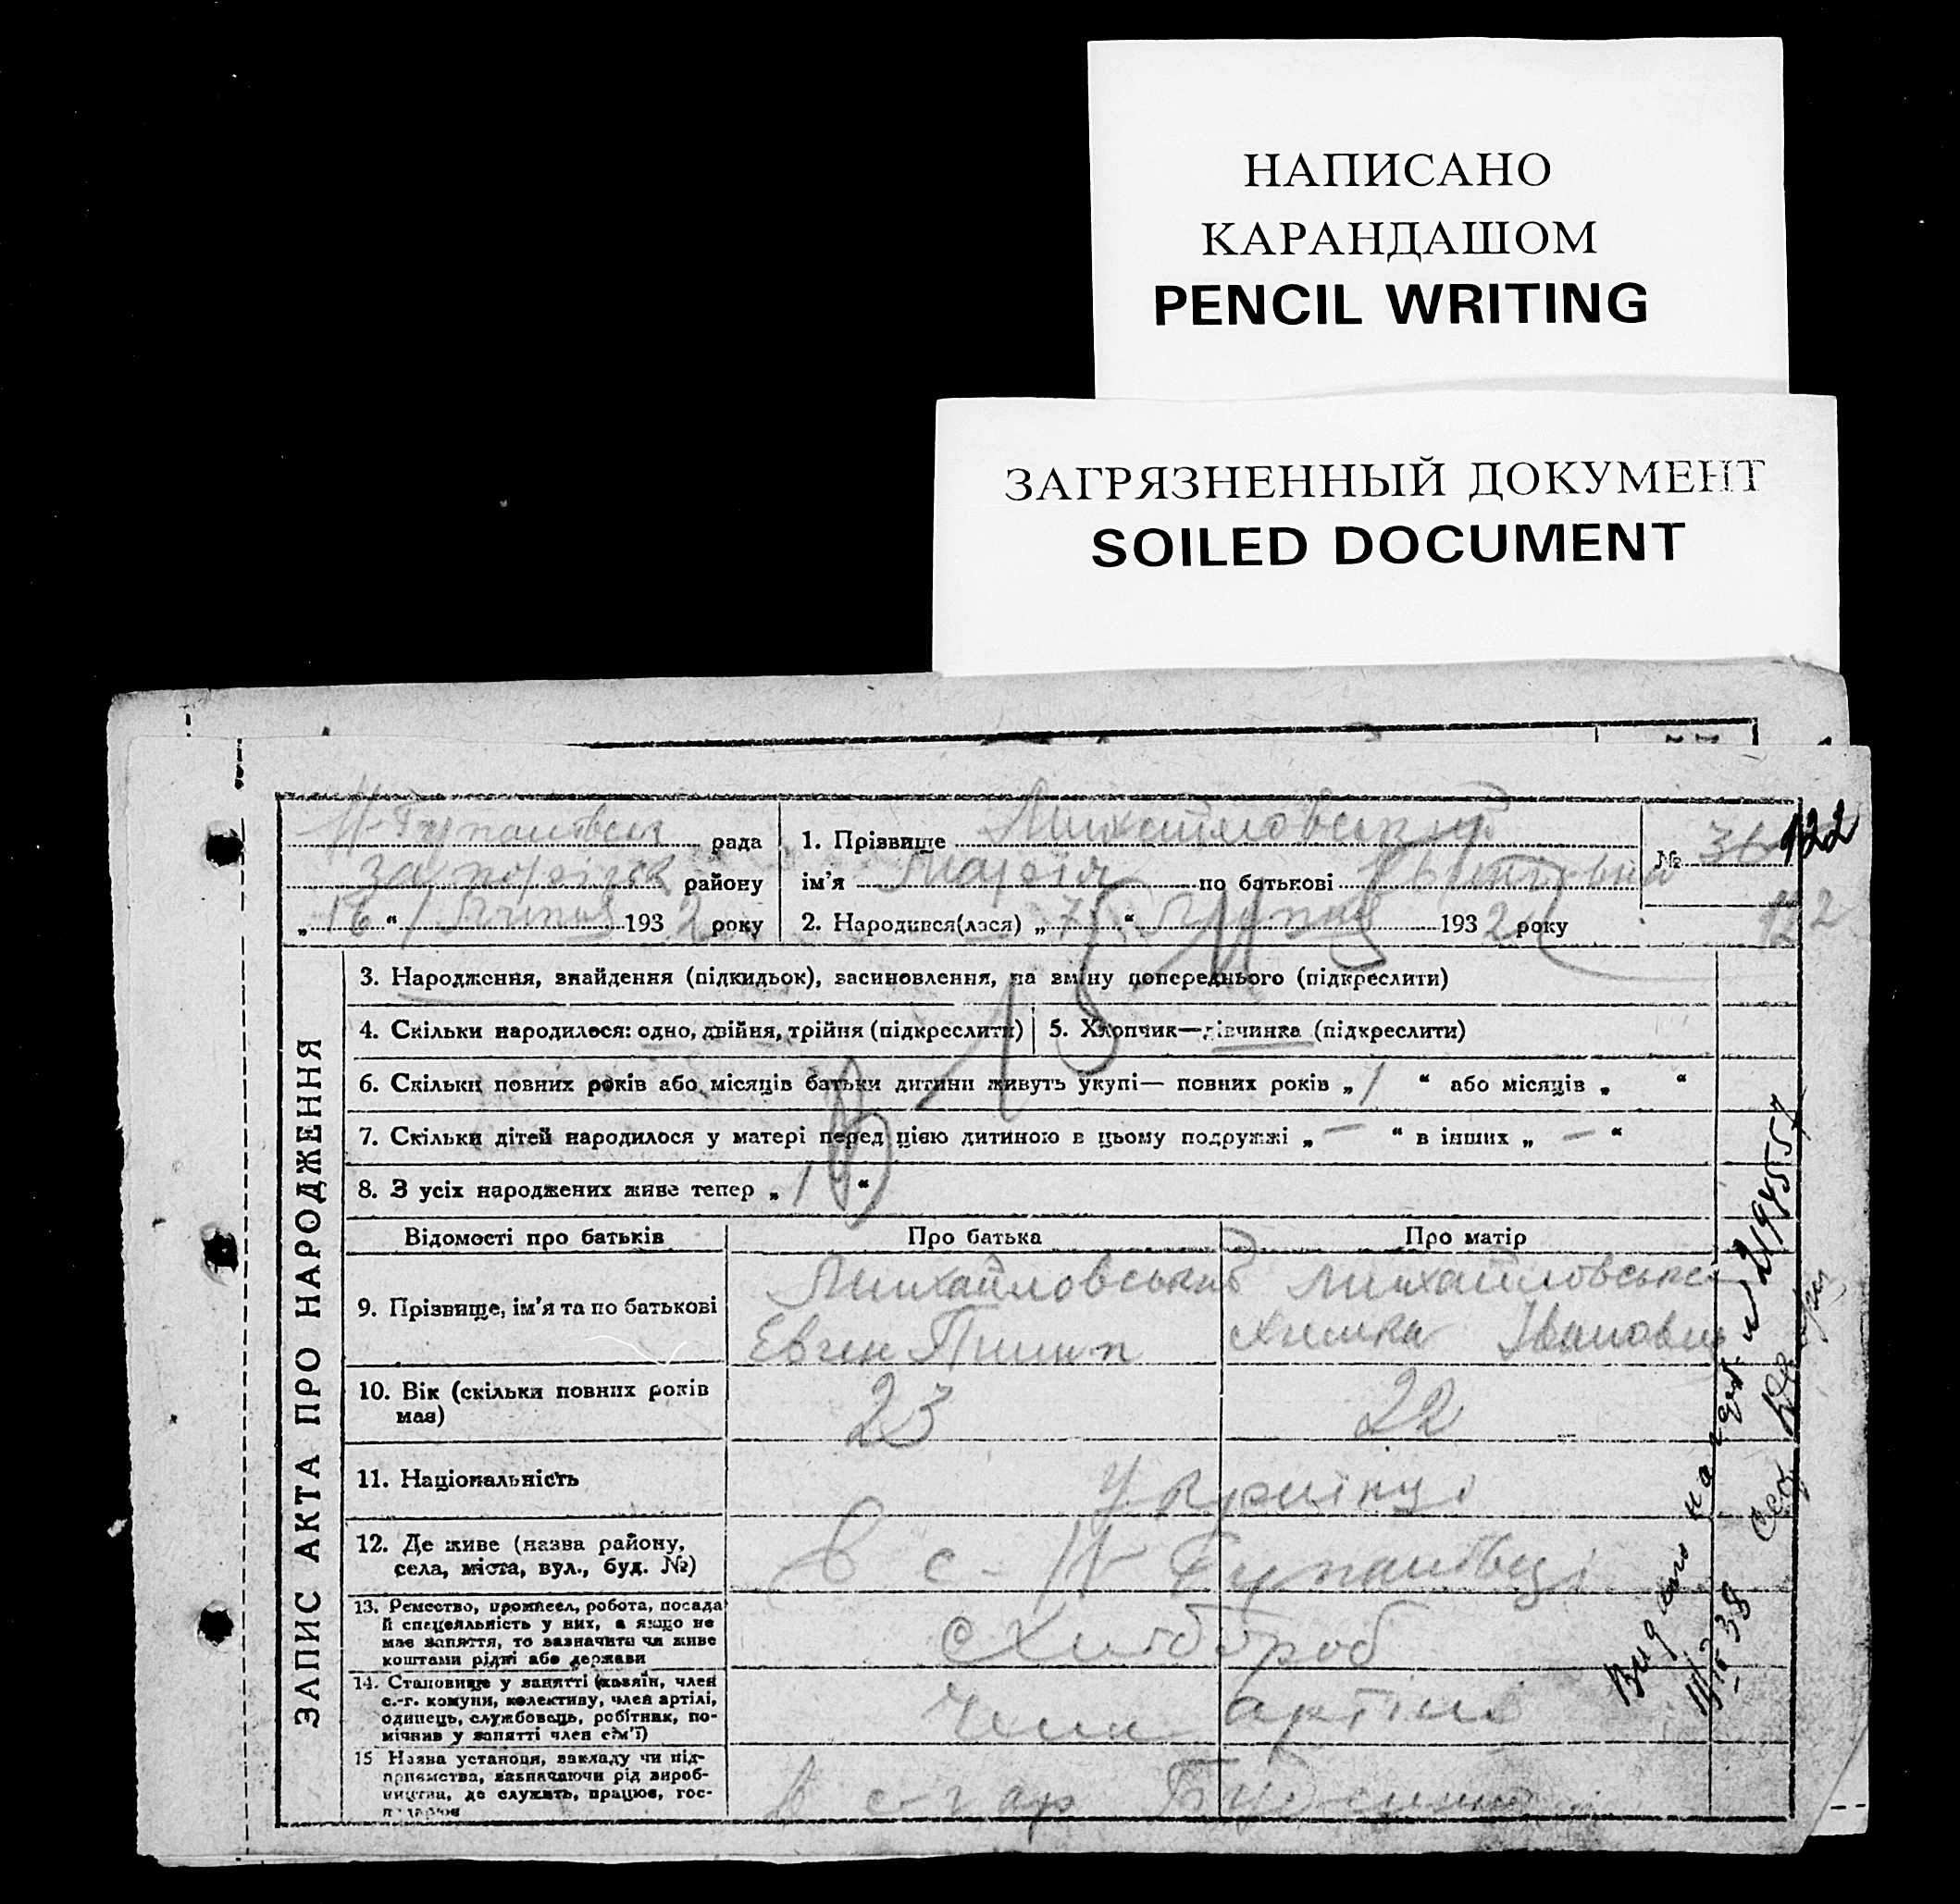 НАПИСАНО
КАРАНДАШОМ
PENCIL WRITING
ЗАГРЯЗНЕННЫЙ ДОКУМЕНТ
SOILED DOCUMENT
ЗАПИС АКТА ПРО НАРОДЖЕННЯ
рада
району
„16“ Липня 1932 року
1. Прізвище Михайловський
ім'я Марія по батькові
2. Народився(лася) „7“ Липня 1932 року
№ 36 122
122
3. Народження, знайдення (підкидьок), засиновлення, на зміну попереднього (підкреслити)
4. Скільки народилося: одно, двійня, трійня (підкреслити)
5. Хлопчик—дівчинка (підкреслити)
6. Скільки повних років або місяців батьки дитини живуть укупі— повних років „1“ або місяців „ “
7. Скільки дітей народилося у матері перед цією дитиною в цьому подружжі „—“ в інших „—“
8. З усіх народжених живе тепер „1“
Відомості про батьків Про батька Про матір
9. Прізвище, ім'я та по батькові
Михайловський
Евген Пилип
Михайловська
Химка Івановна
10. Вік (скільки повних років має) 23 22
11. Національність Українці
12. Де живе (назва району,
села, міста, вул., буд. №)
в с. Н
13. Ремество, промисел, робота, посада
й спеціяльність у них, а якщо не
має заняття, то зазначити чи живе
коштами рідні або держави
Хлібороб
14. Становище у занятті (хазяїн, член
с.-г. комуни, колективу, член артілі,
одинець, службовець, робітник, по-
мічник у занятті член сім'ї)
Член артілі
15 Назва установи, закладу чи під-
приємства, зазначаючи рід вироб-
ництва, де служить, працює, гос-
подарює
в с-г ар
Видано